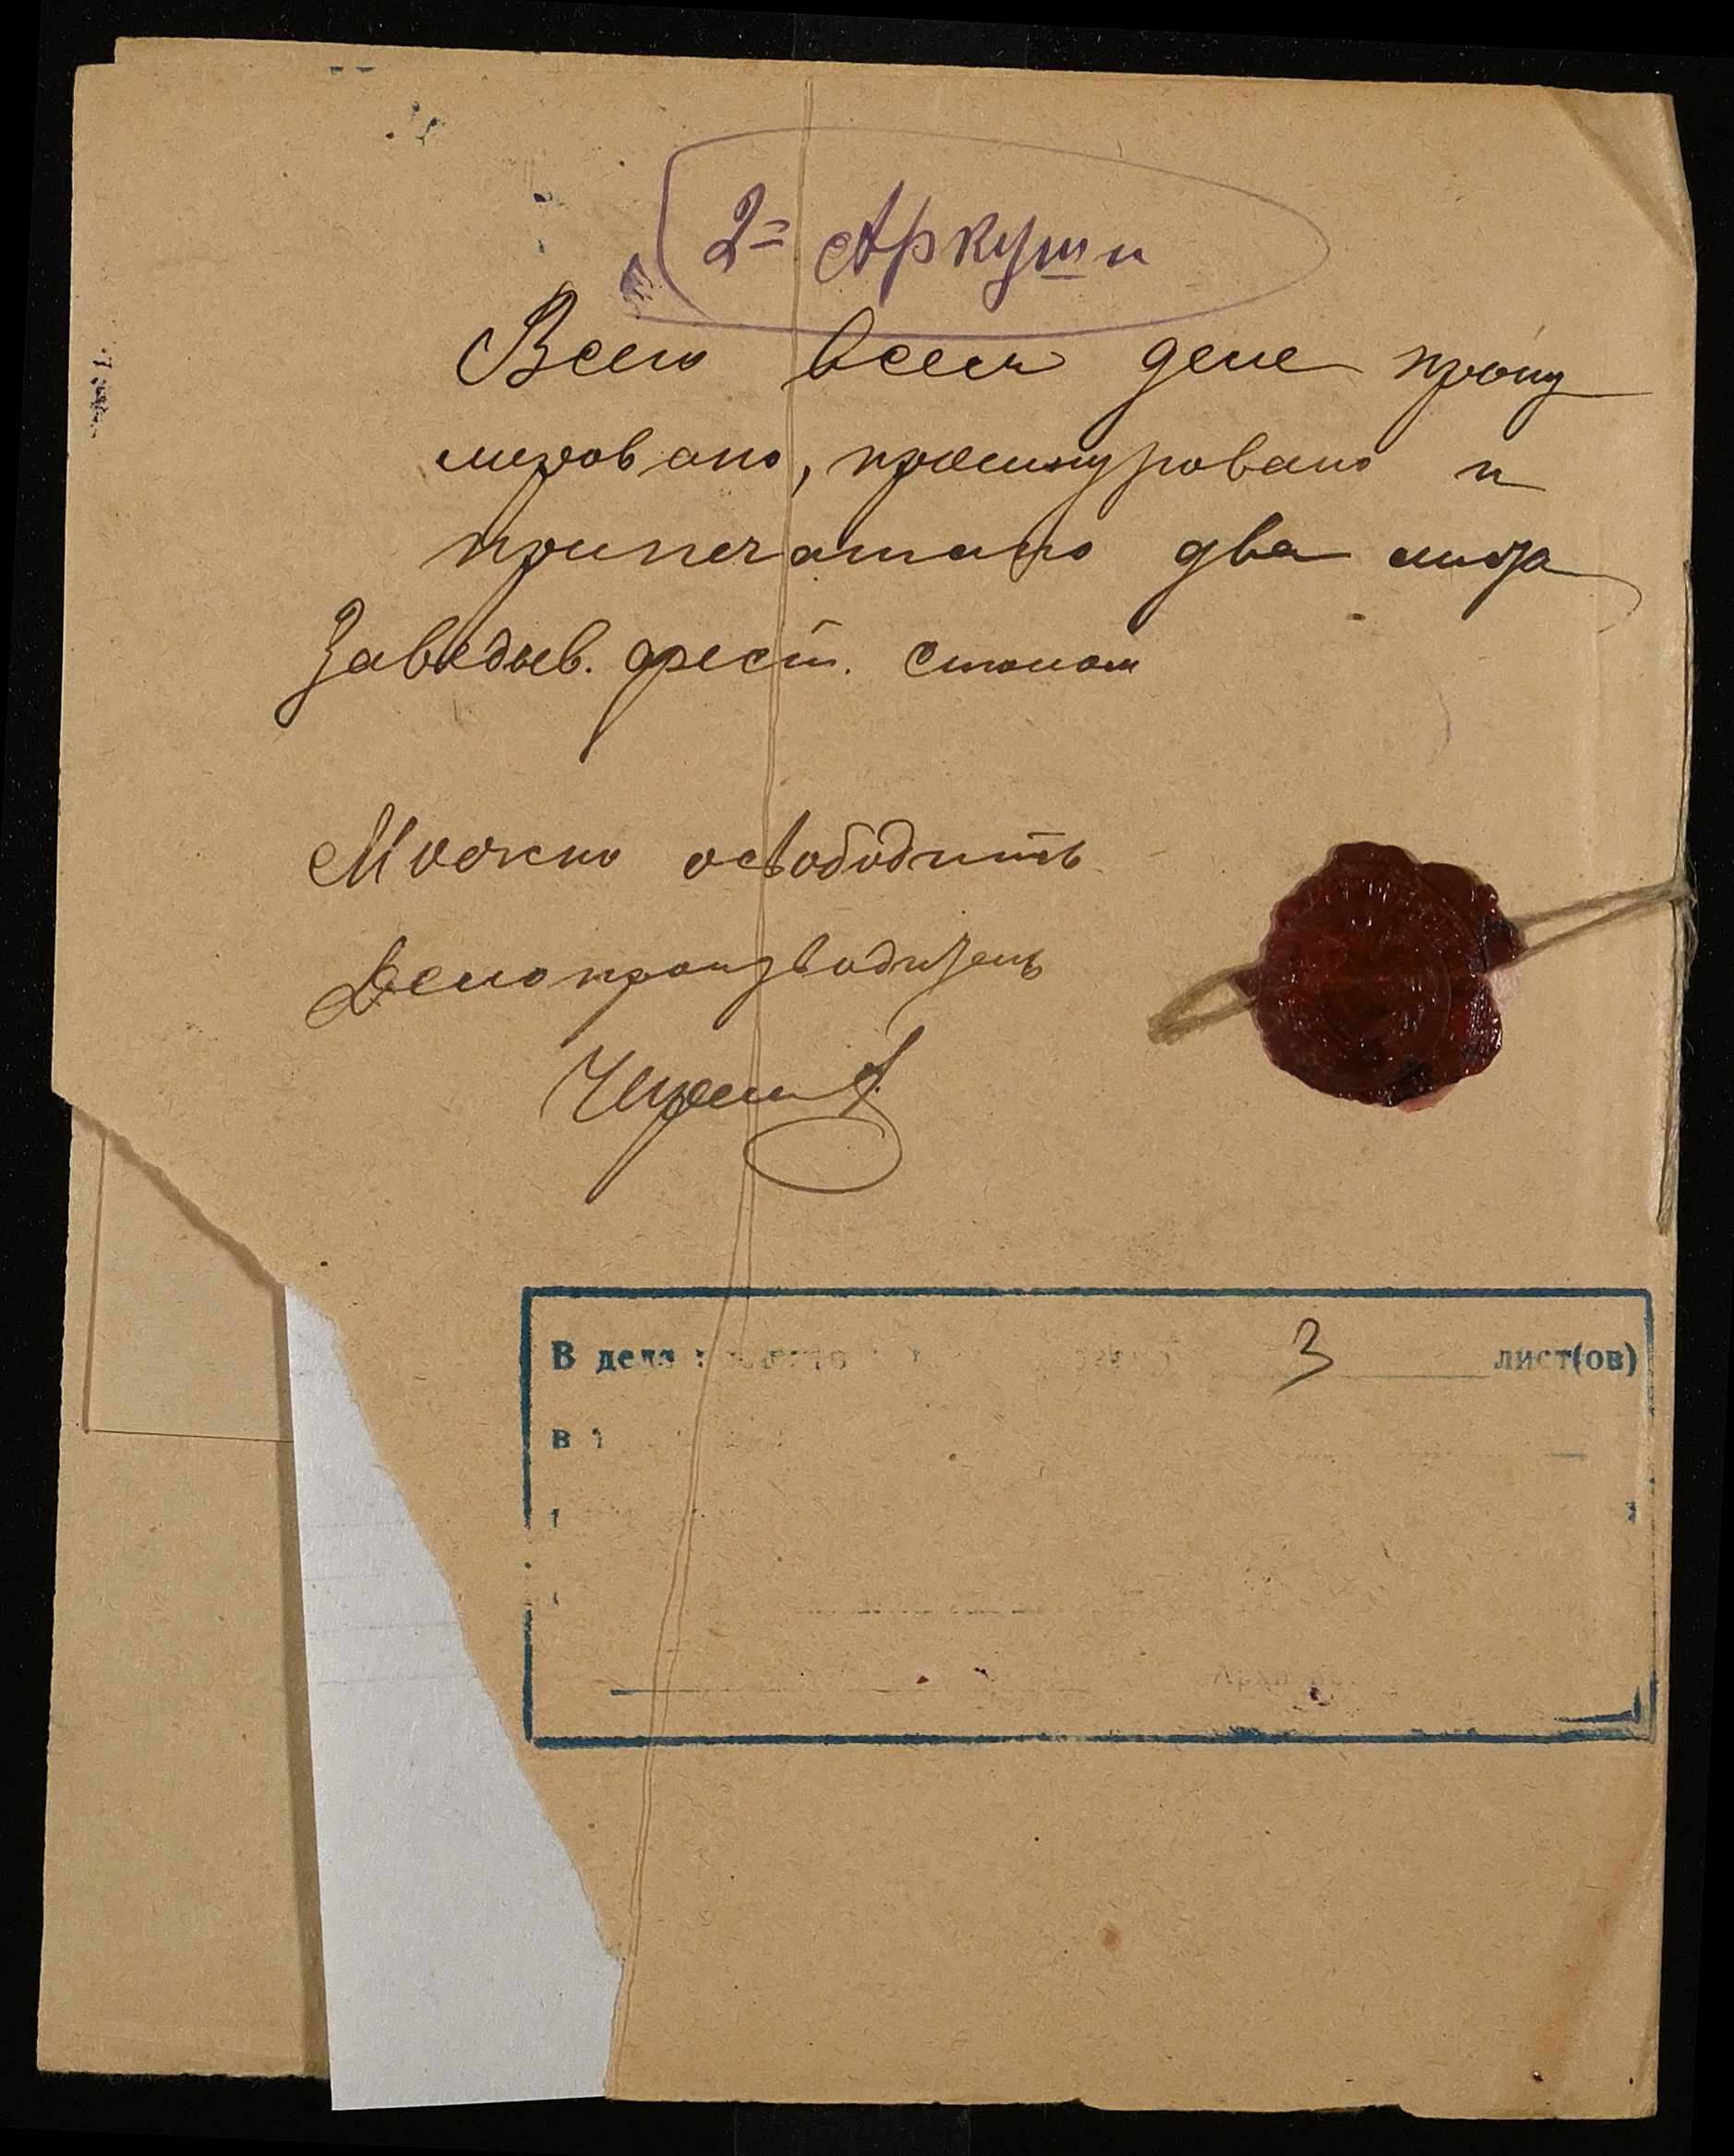 2= Аркуши
Всего всем деле прону
мировано, прошнуровано и
припечатано два листа
Заведыв. арест. столом
Можно освободить
Делопроизводитель
В деле 3 лист(ов)
в